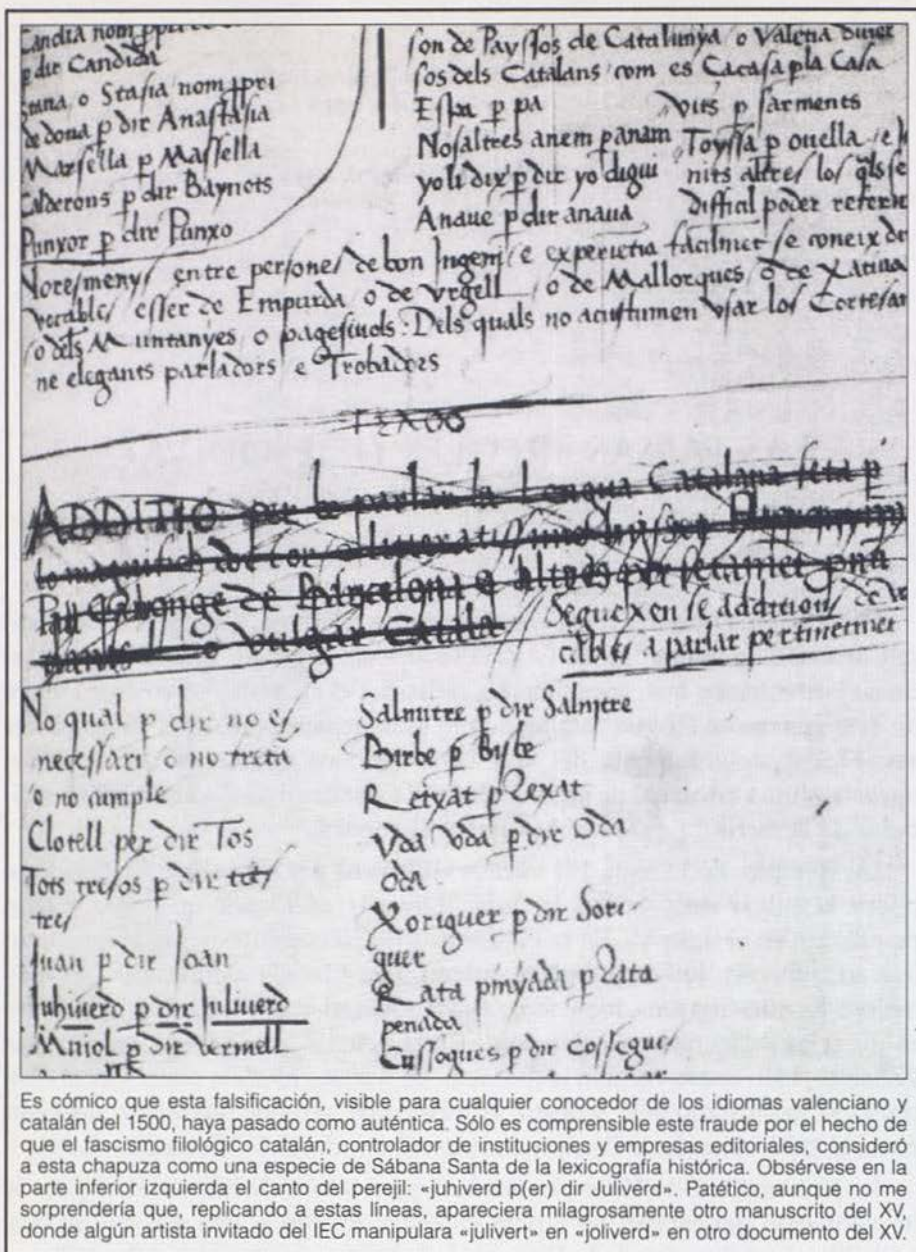 Candia nom
e dir Candida
o Stasia nom
de dona p dir Anastasia
Marsella p Massella
Calderons p dir Baynots
Punxor p dir Punxo
son de Payssos de Catalunya o Valencia
sos dels Catalans com es Cacasa p la Casa
Espa p pa
Nosaltres anem panam
yo li dix p dir yo digui
Anaue p dir anaua
Vits p sarments
Toyssa p ouella
nits altres los qls
difficil poder referir
entre persones de bon Ingeni e experietia facilmet se coneix
esser de Empurda o de Vrgell o de Mallorques o de Xatiua
o dels Muntanyes o pagesiuols: Dels quals no acustumen vsar los Cortesans
ne elegants parladors e Trobadors
ADDITIO per lo parlar la lengua Catalana feta p
lo magnifich
Pau Canonge de Barcelona e altres
o vulgar Catala
Segueixen se additions de
cables a parlar pertinetmet
No qual p dir no es
necessari o no
o no cumple
Clotell per dir Tos
Tots tresos p dir tots
tres
Juan p dir Joan
Juhiuerd p dir Juliuerd
Miniol p dir vermell
Salmitre p dir Salnitre
Birbe p bisbe
Retxat p Rexat
Vda Voda p dir Oda
Oda
Xoriguer p dir Sori
guer
Rata pinyada p Rata
penada
Cussogues p dir Cossegues
Es cómico que esta falsificación, visible para cualquier conocedor de los idiomas valenciano y
catalán del 1500, haya pasado como auténtica. Sólo es comprensible este fraude por el hecho de
que el fascismo filológico catalán, controlador de instituciones y empresas editoriales, consideró
a esta chapuza como una especie de Sábana Santa de la lexicografía histórica. Obsérvese en la
parte inferior izquierda el canto del perejil: «juhiverd p(er) dir Juliverd». Patético, aunque no me
sorprendería que, replicando a estas líneas, apareciera milagrosamente otro manuscrito del XV,
donde algún artista invitado del IEC manipulara «julivert» en «joliverd» en otro documento del XV.